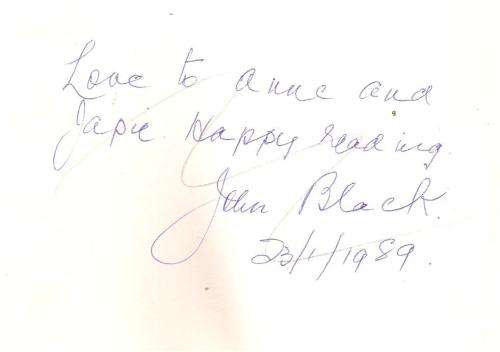 Love to Anne and
Japie. Happy reading.
John Black.
23/1/1989.